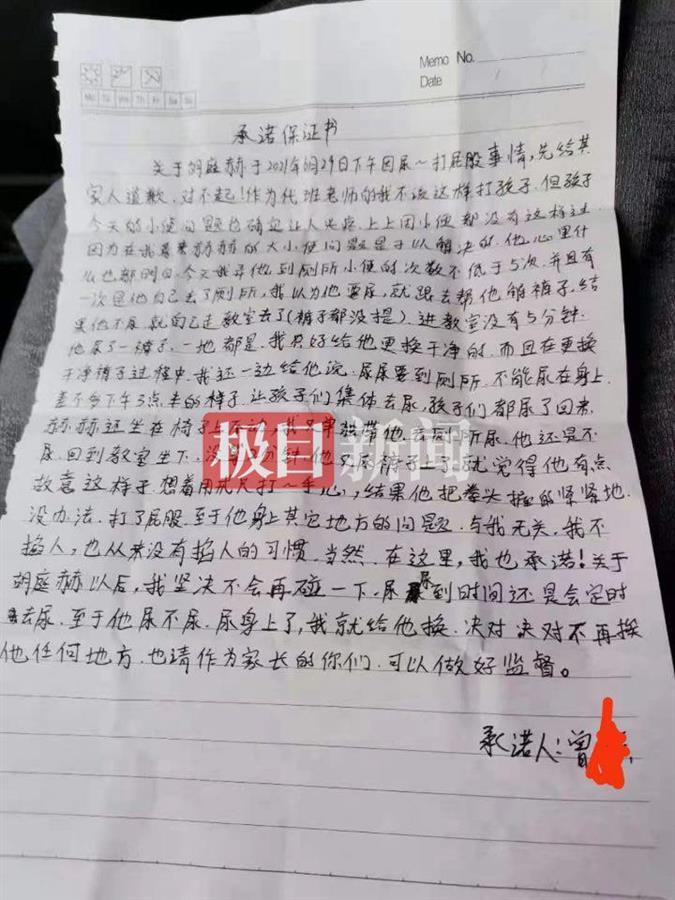 Memo No.
Date
Mo Tu We Th Fr Sa Su
承诺保证书
关于胡庭赫于2021年月29日下午因尿~打屁股事情,先给其
家人道歉.对不起!作为代班老师的我不该这样打孩子.但孩子
今天的小便问题也确实让人头疼.上上周小便都没有这样过.
因为在我看来赫赫的大小便问题是可以解决的.他心里什
么也都明白.今天我寻他到厕所小便的次数不低于5次.并且有
一次是他自己去了厕所,我以为他要尿,就跟去帮他够裤子.结
果他不尿就自己走教室去了(裤子都没提).进教室没有5分钟.
他尿了一裤子.一地都是.我只好给他更换干净的.而且在更换
干净裤子过程中.我还一边给他说.尿尿要到厕所.不能尿在身上.
差不多下午3点来的样子.让孩子们集体去尿,孩子们都尿了回来.
赫赫还坐在椅子上不动,我单独带他去厕所尿.他还是不
尿.回到教室坐下,没分钟.他又尿裤子上了.就觉得他有点
故意这样子.想着用戒尺打一手心,结果他把拳头握的紧紧地.
没办法.打了屁股.至于他身上其它地方的问题.与我无关.我不
掐人,也从来没有掐人的习惯.当然.在这里,我也承诺!关于
胡庭赫以后,我坚决不会再碰一下.尿尿到时间还是会定时
去尿.至于他尿不尿.尿身上了,我就给他换.决对决对不再挨
他任何地方.也请作为家长的你们.可以做好监督。
承诺人:曾
极目新闻